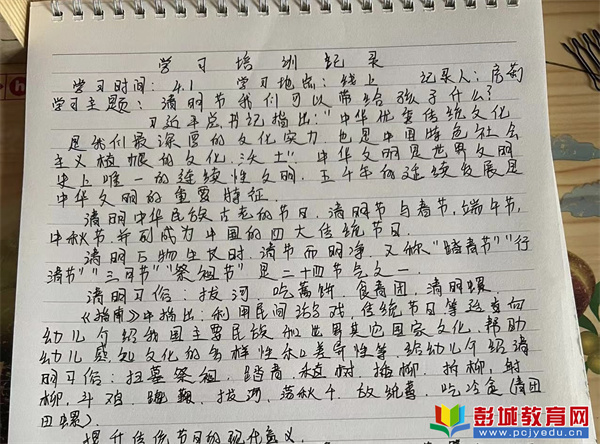 学习培训纪录
学习时间：4.1 学习地点：线上 记录人：房菊
学习主题：清明节我们可以带给孩子什么？
习近平总书记指出："中华优秀传统文化
是我们最深厚的文化实力，也是中国特色社会
主义植根的文化沃土"。中华文明是世界文明
史上唯一的连续性文明，五千年的延续发展是
中华文明的重要特征。
清明中华民族古老的节日，清明节与春节，端午节，
中秋节并列成为中国的四大传统节日。
清明万物生长时，清节而明净，又称"踏青节""行
清节""三月节""祭祖节"是二十四节气之一。
清明习俗：拔河 吃蒿饼 食青团，清明螺。
《指南》中指出：利用民间游戏，传统节日等适宜向
幼儿介绍我国主要民族和世界其它国家文化，帮助
幼儿感知文化的多样性和差异性等。给幼儿介绍清
明习俗：扫墓祭祖，踏青，植树，插柳，折柳，射
柳，斗鸡，蹴鞠，拔河，荡秋千，放纸鸢，吃冷食（清团
田螺）
提升传统节日的现代意义。
彭城教育网
www.pcjyedu.cn